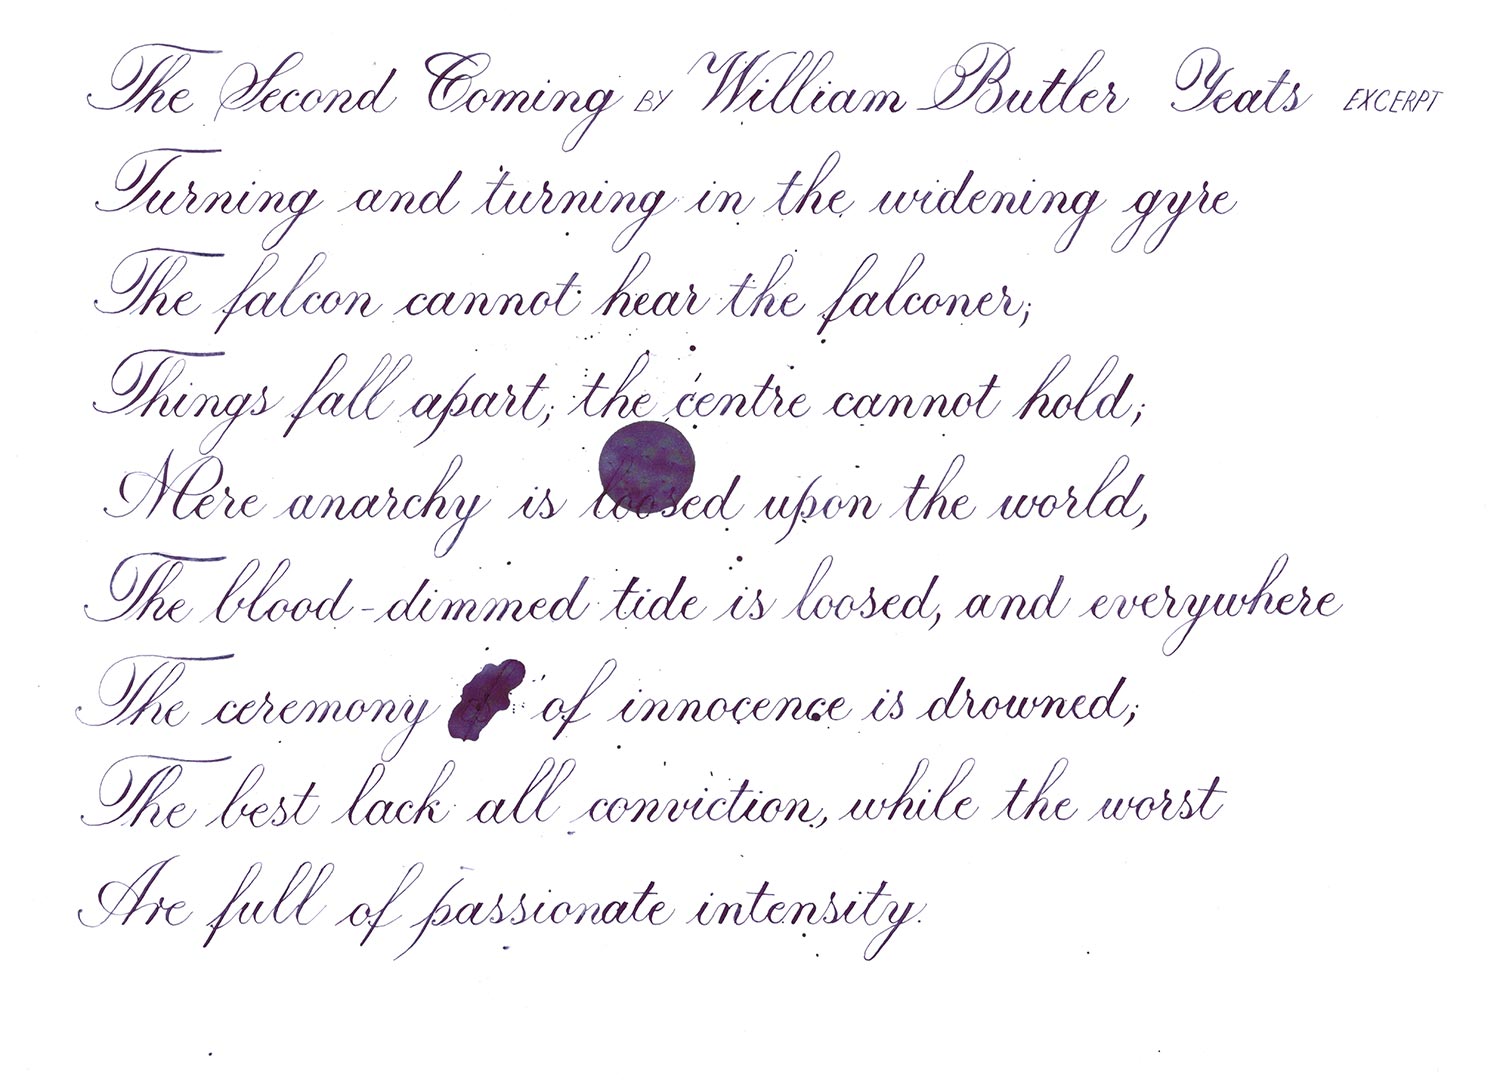 The Second Coming BY William Butler Yeats EXCERPT
Turning and turning in the widening gyre
The falcon cannot hear the falconer;
Things fall apart; the centre cannot hold;
Mere anarchy is loosed upon the world,
The blood-dimmed tide is loosed, and everywhere
The ceremony of innocence is drowned;
The best lack all conviction, while the worst
Are full of passionate intensity.